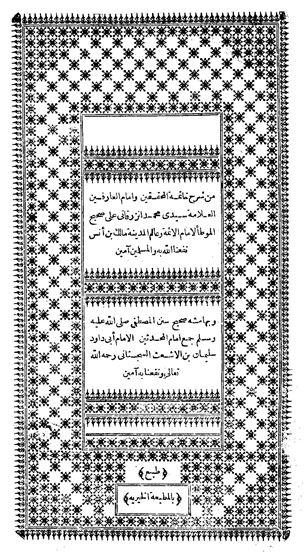 من شرح خاتمة المحققين وامام العارفين
العلامة سيدى محمد الزرقانى على صحيح
الموطأ لامام الائمة وعالم المدينة مالك بن أنس
نفعنا الله به والمسلمين آمين
وبهامشه صحيح سنن المصطفى صلى الله عليه
وسلم جمع امام المحدثين الامام أبى داود
سليمان بن الاشعث السجستانى رحمه الله
تعالى ونفعنا به آمين
﴿طبع﴾
﴿بالمطبعة الخيرية﴾